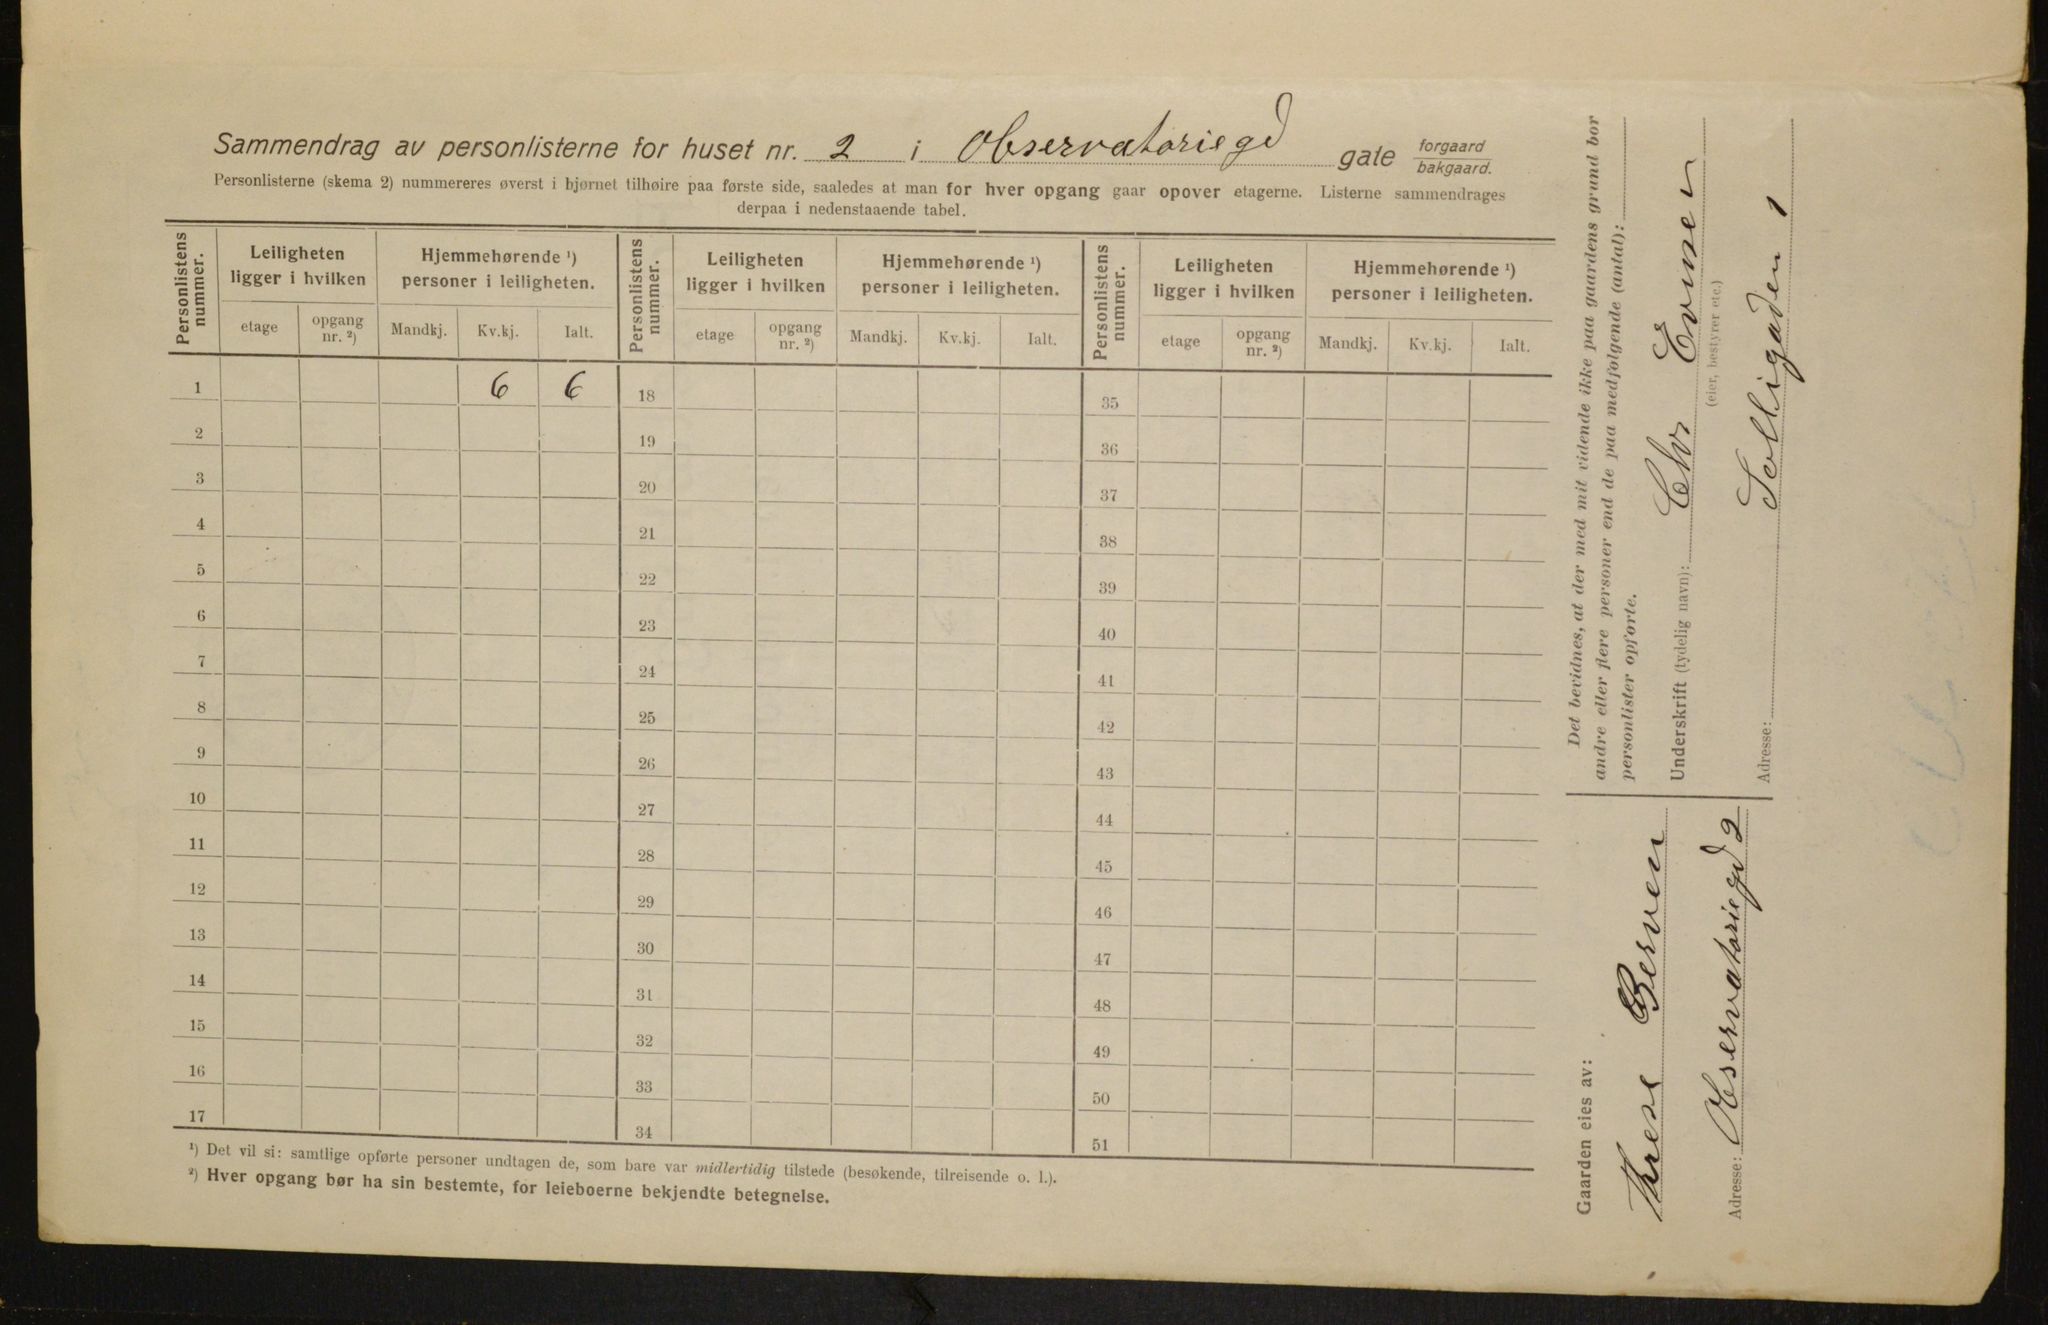 Sammendrag av personlisterne for huset nr. 2 i Observatoriegd gate forgaard bakgaard.
Personlisterne (skema 2) nummereres øverst i hjørnet tilhøire paa første side, saaledes at man for hver opgang gaar opover etagerne. Listerne sammendrages
derpaa i nedenstaaende tabel.
Personlistens nummer. Leiligheten ligger i hvilken Hjemmehørende ¹) personer i leiligheten. Personlistens nummer. Leiligheten ligger i hvilken Hjemmehørende ¹) personer i leiligheten. Personlistens nummer. Leiligheten ligger i hvilken Hjemmehørende ¹) personer i leiligheten.
etage opgang nr. ²) Mandkj. Kv.kj. Ialt. etage opgang nr. ²) Mandkj. Kv.kj. Ialt. etage opgang nr. ²) Mandkj. Kv.kj. Ialt.
1 6 6 18 35
2 19 36
3 20 37
4 21 38
5 22 39
6 23 40
7 24 41
8 25 42
9 26 43
10 27 44
11 28 45
12 29 46
13 30 47
14 31 48
15 32 49
16 33 50
17 34 51
¹) Det vil si: samtlige opførte personer undtagen de, som bare var midlertidig tilstede (besøkende, tilreisende o. l.).
²) Hver opgang bør ha sin bestemte, for leieboerne bekjendte betegnelse.
Gaarden eies av:
Threse Berven
Adresse: Observatoriegd 2
Det bevidnes, at der med mit vidende ikke paa gaardens grund bor
andre eller flere personer end de paa medfølgende (antal):
personlister opførte.
Underskrift (tydelig navn): Chr Evensen
(eier, bestyrer etc.)
Adresse: Solligaden 1